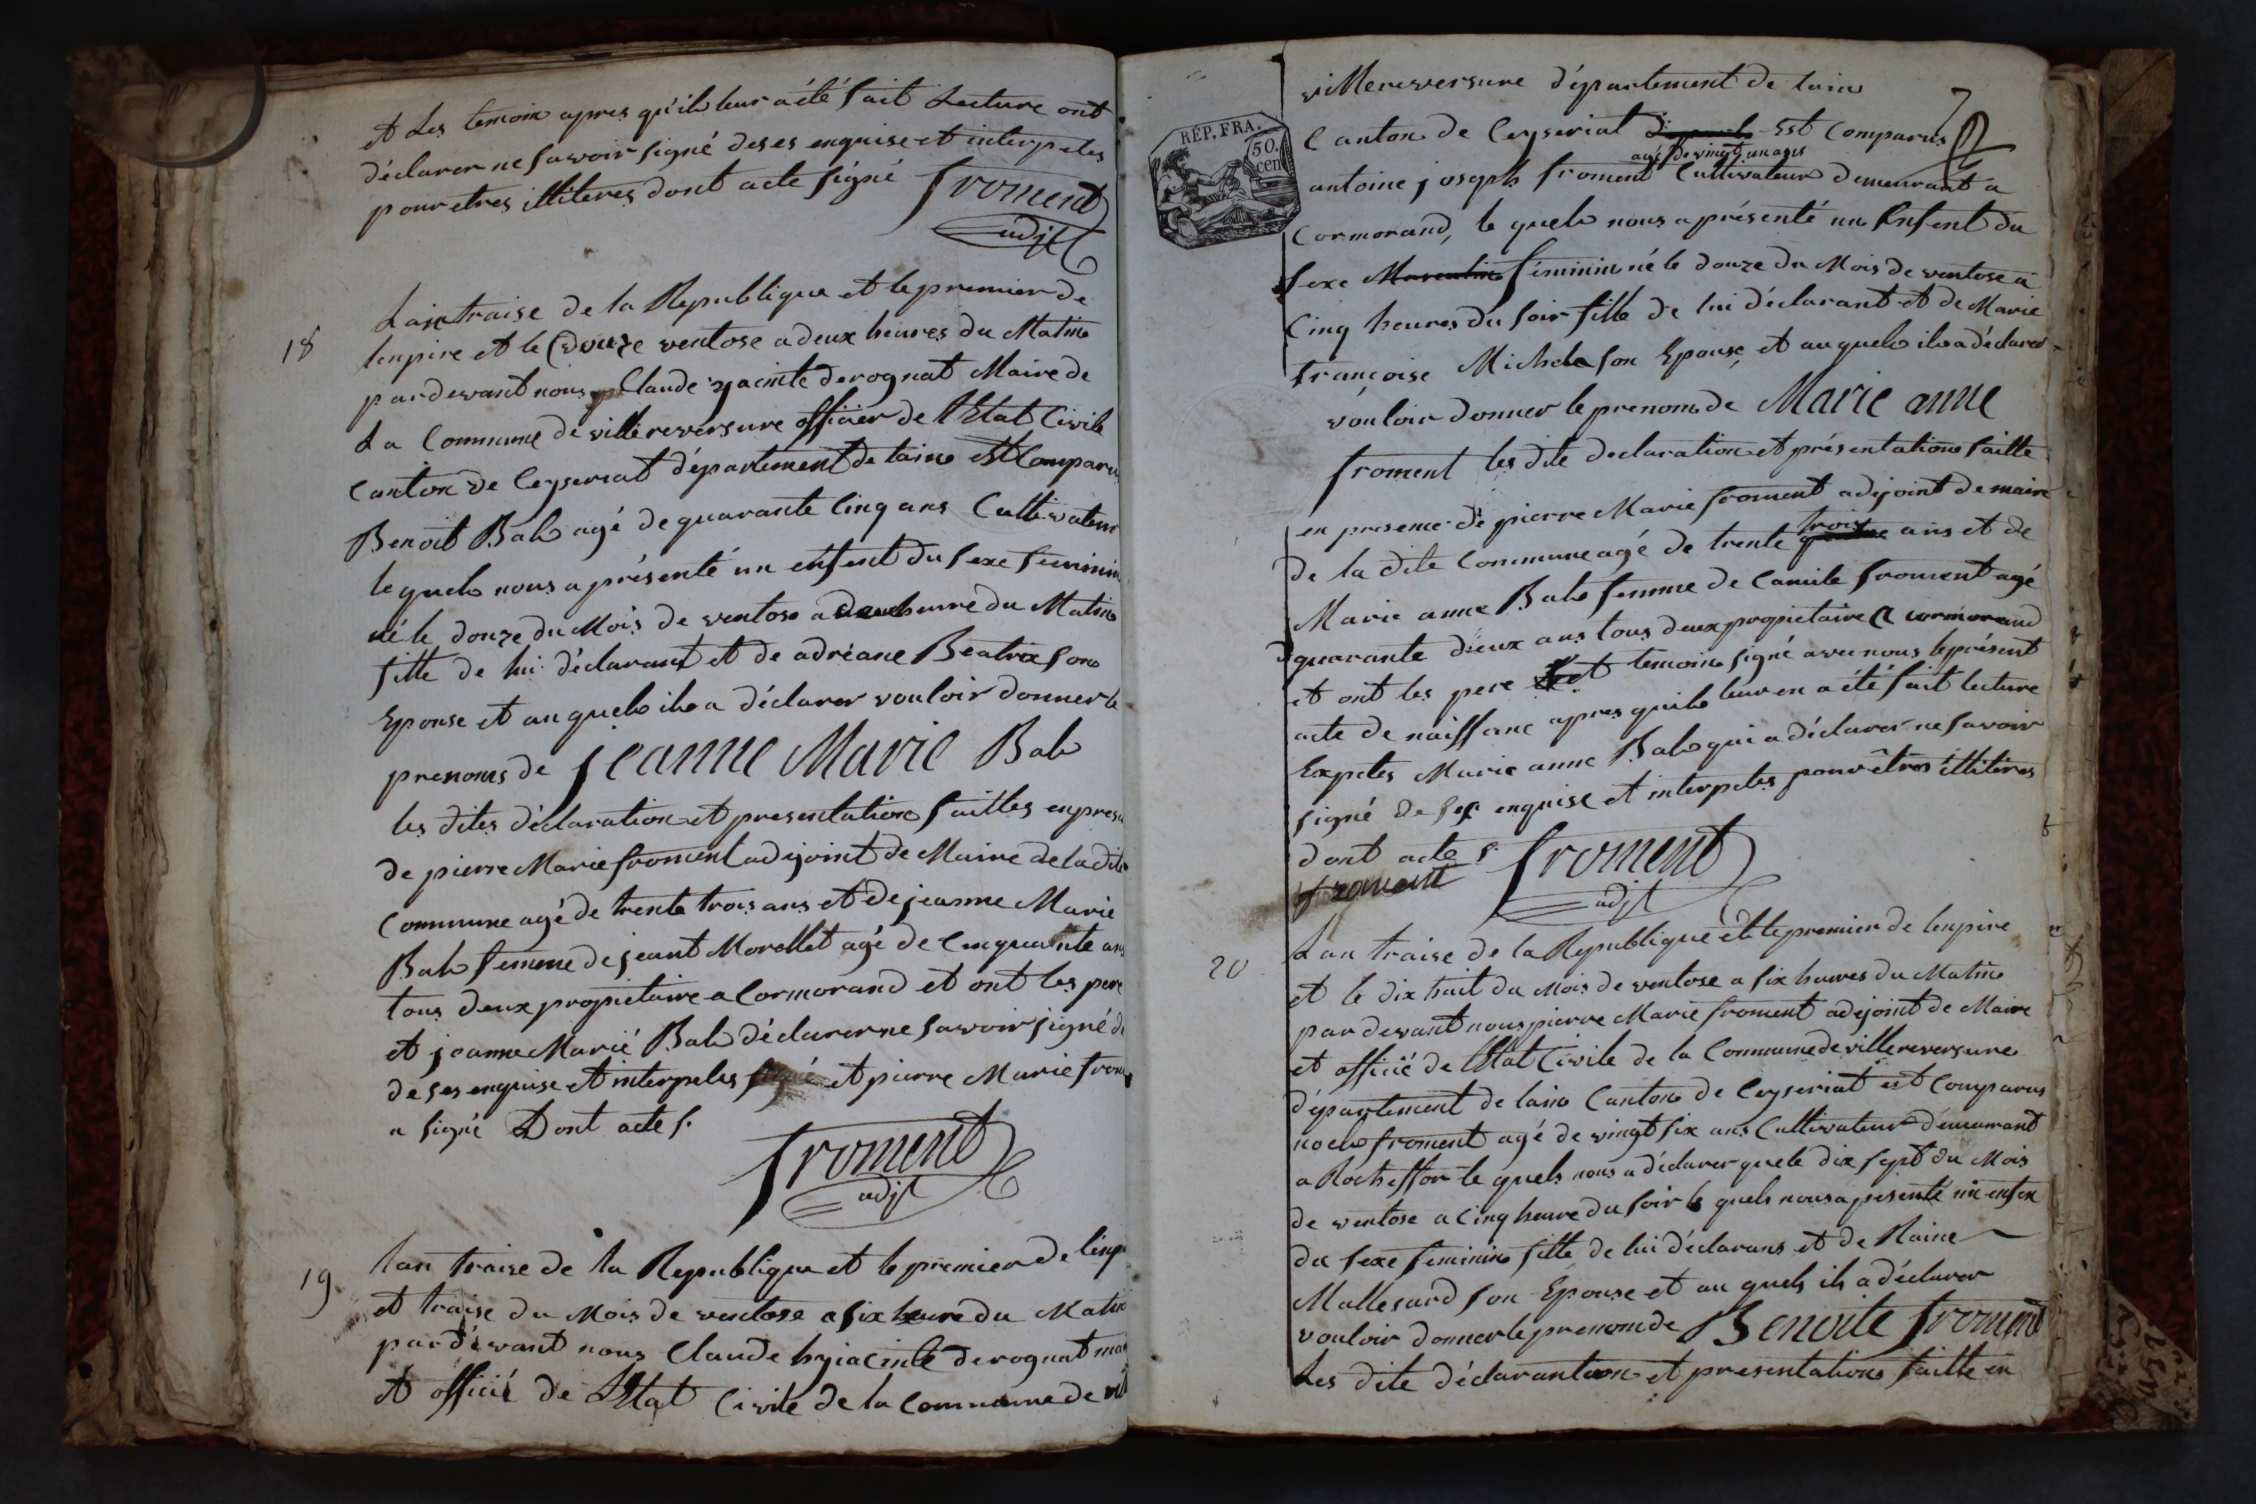 et Les temoin apres qu'ils leur a été fait Lecture ont
déclarer ne savoir signé deses enquise et interpeles
pour etres illiteres dont acte signé froment
adjt
18
Lan traise de la Republique et le premier de
lenpire et le douze ventose a deux heures du Matin
par devant nous Claude yacinte derognat Maire de
La Commune de villereversure officier de l'Etat Civile
Canton de Ceyseriat département de lain est Comparu
Benoit Bah agé de quarante Cinq ans Cultivateur
le quels nous a présenté un enfent du sexe feminin
né le douze du Mois de ventose a deux heure du Matin
fille de lui déclarant et de adréane Béatrix son
Epouse et au quels ils a déclarer vouloir donner le
prenoms de jeanne Marie Bah
les dites déclaration et presentation faittes en pres
de pierre Marie froment adejoint de Maire de la dite
Commune agé de trente trois ans et de jeanne Marie
Bah femme de jeant Morellet agé de Cinquante ans
tous deux propriétaire a Cormorand et ont les pere
et jeanne Marié Bah déclarer ne savoir signé de
de ses enquise et interpeles et pierre Marie from
a signé Dont acte s.
froment
adjt
19
Lan traise de la Republique et le premier de lenp
et traise du Mois de ventose a six heure du Matin
par dévant nous Claude hyiacinte derognat mai
et officié de LEtat Civile de la Commune de vil
7
REP. FRA.
50.
cen
villereversure département de lain
Canton de Ceyseriat Est Comparus
agé de vingt un ans
antoine joseph froment Cultivateur demeurant a
Cormorand, le quels nous a présenté un Enfent du
sexe Masculin féminin né le douze du Mois de ventose a
Cinq heures du soir fille de lui déclarant et de Marie
françoise Michela son Epouse et au quels ils a déclarer
vouloir donner le prenom de Marie anne
froment les dite declaration et présentation faitte
en presence de pierre Marie froment adejoint de maire
trois
de la dite Commune agé de trente ans et de
Marie anne Bah femme de Camile froment agé
quarante dieux ans tous deux propietaire a cormorand
et ont les pere et temoin signé avec nous le présent
acte de naissanc apres quils leur en a été fait lecture
Expetes Marie anne Bah qui a déclarer ne savoir
signé de ses enquise et interpeles pour êtres illiteres
dont acte s. froment
froment adjt
20
Lan traise de la Republique et le premier de lenpire
et le dix huit du Mois de ventose a six heures du Matin
par devant nous pierre Marie froment adejoint de Maire
et officié de lEtat Civile de la Commune de villereversure
département de lain Canton de Ceyseriat est Comparus
noels froment agé de vingt six ans Cultivateur demeurant
a Rocheffor le quels nous a déclarer que le dix sept du Mois
de ventose a Cinq heure du soir le quels nous a presenté un enfen
du sexe feminin fille de lui déclarans et de Raine
Mallesard son Epouse et au quels ils a déclarer
vouloir donner le prenom de Benoite froment
Les dite déclarantion et presentation faitte en